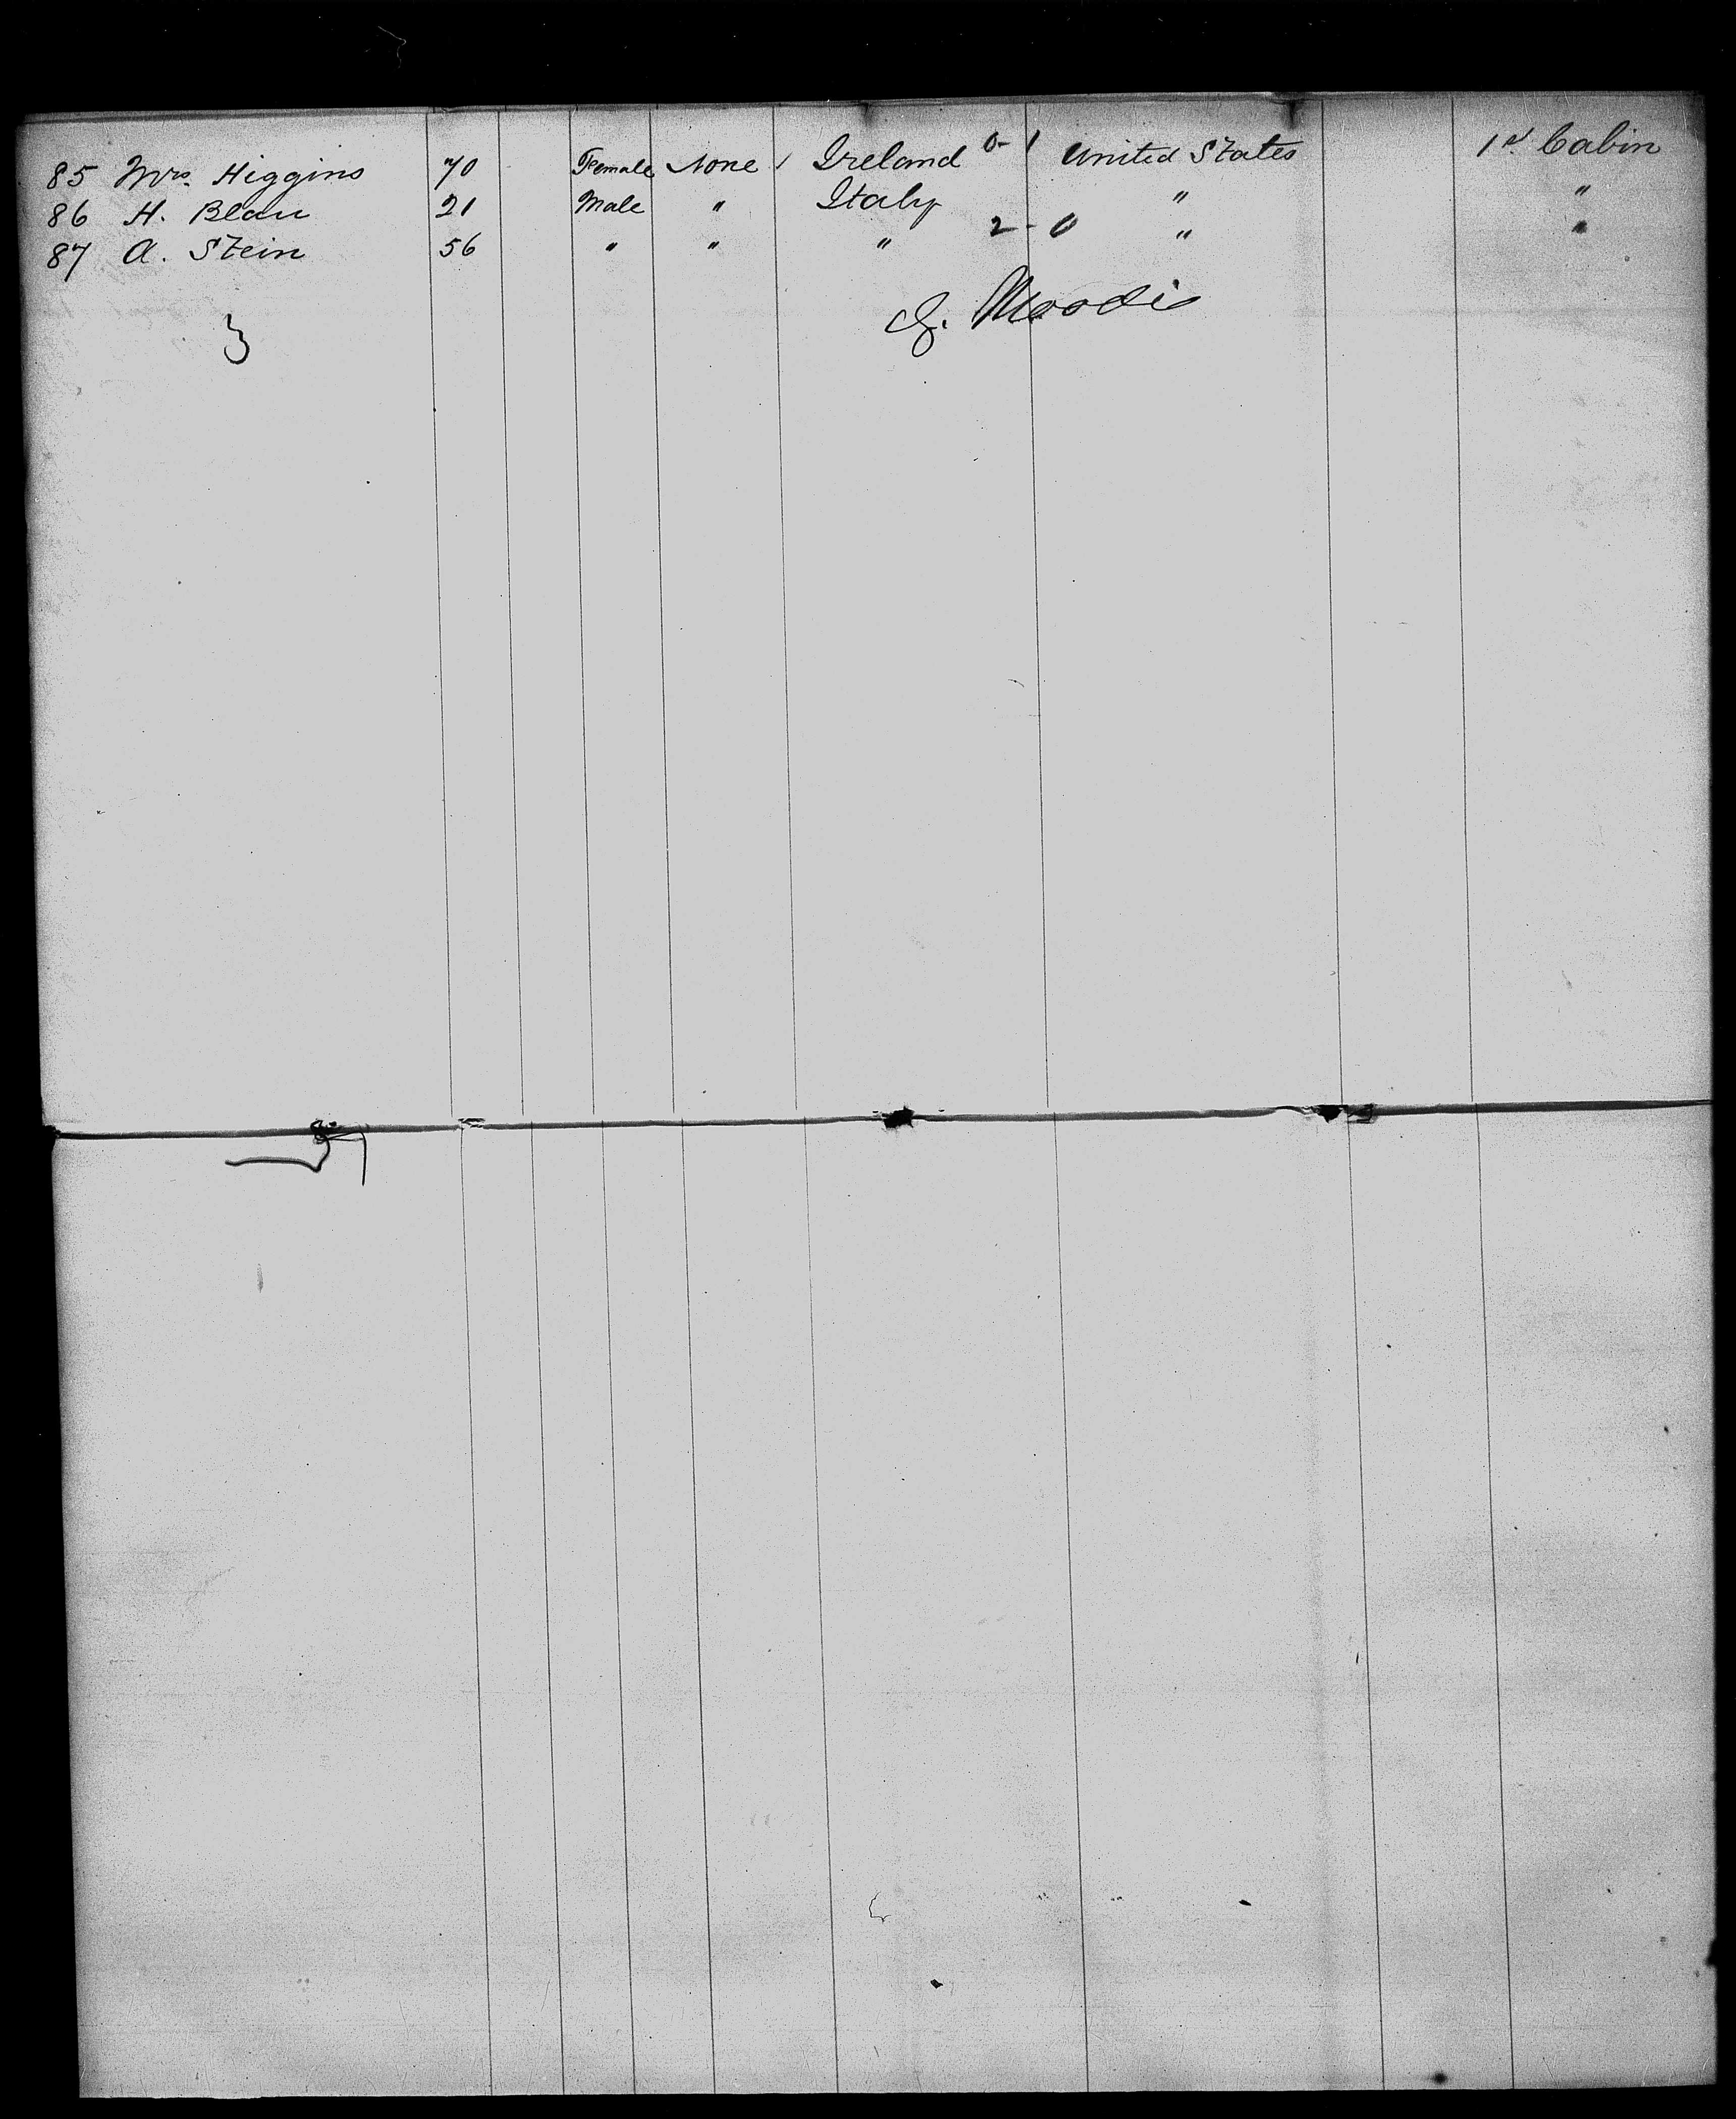 85 Mrs. Higgins 70 Female None / Ireland 0-1 United States 1st Cabin
86 H. Blau 21 Male " Italy " "
87 A. Stein 56 " " " 2-0 " "
3
J. Moodie